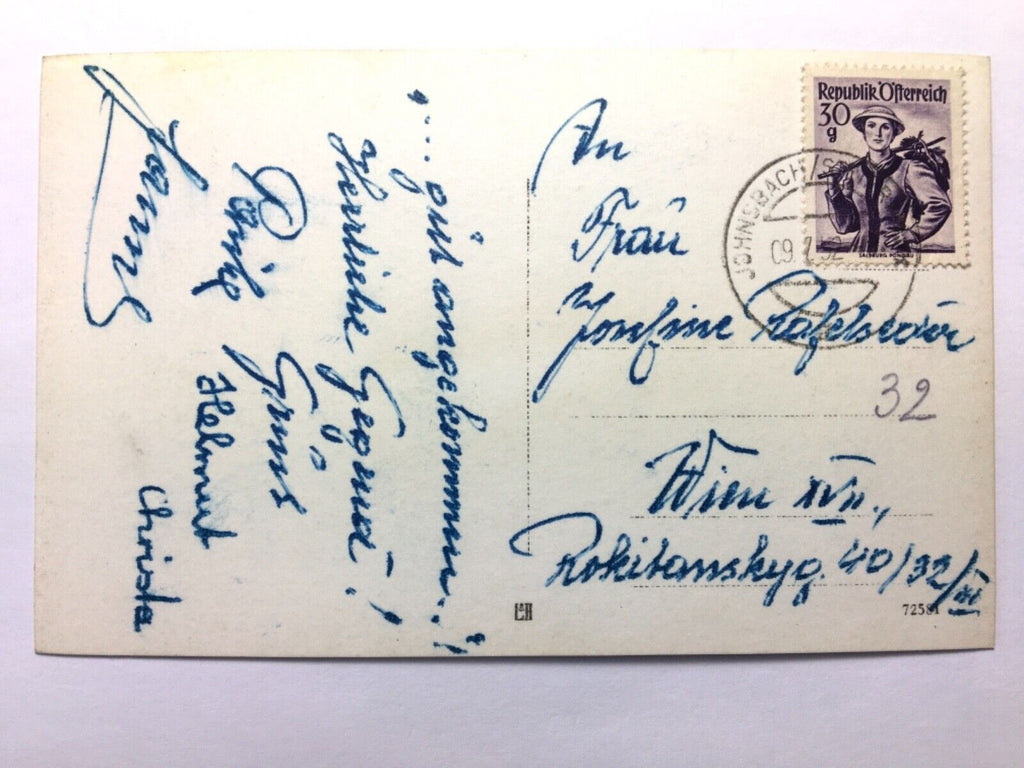 "... gut angekommen..!"
Herrliche Gegend!
Gruss
Helmut
Christa
An
Frau
Josefine
Wien XVII.,
Rokitanskyg. 40/32/III
32
Republik Österreich
30
g
SALZBURG PONGAU
JOHNSBACH/ST
09. 52
72581